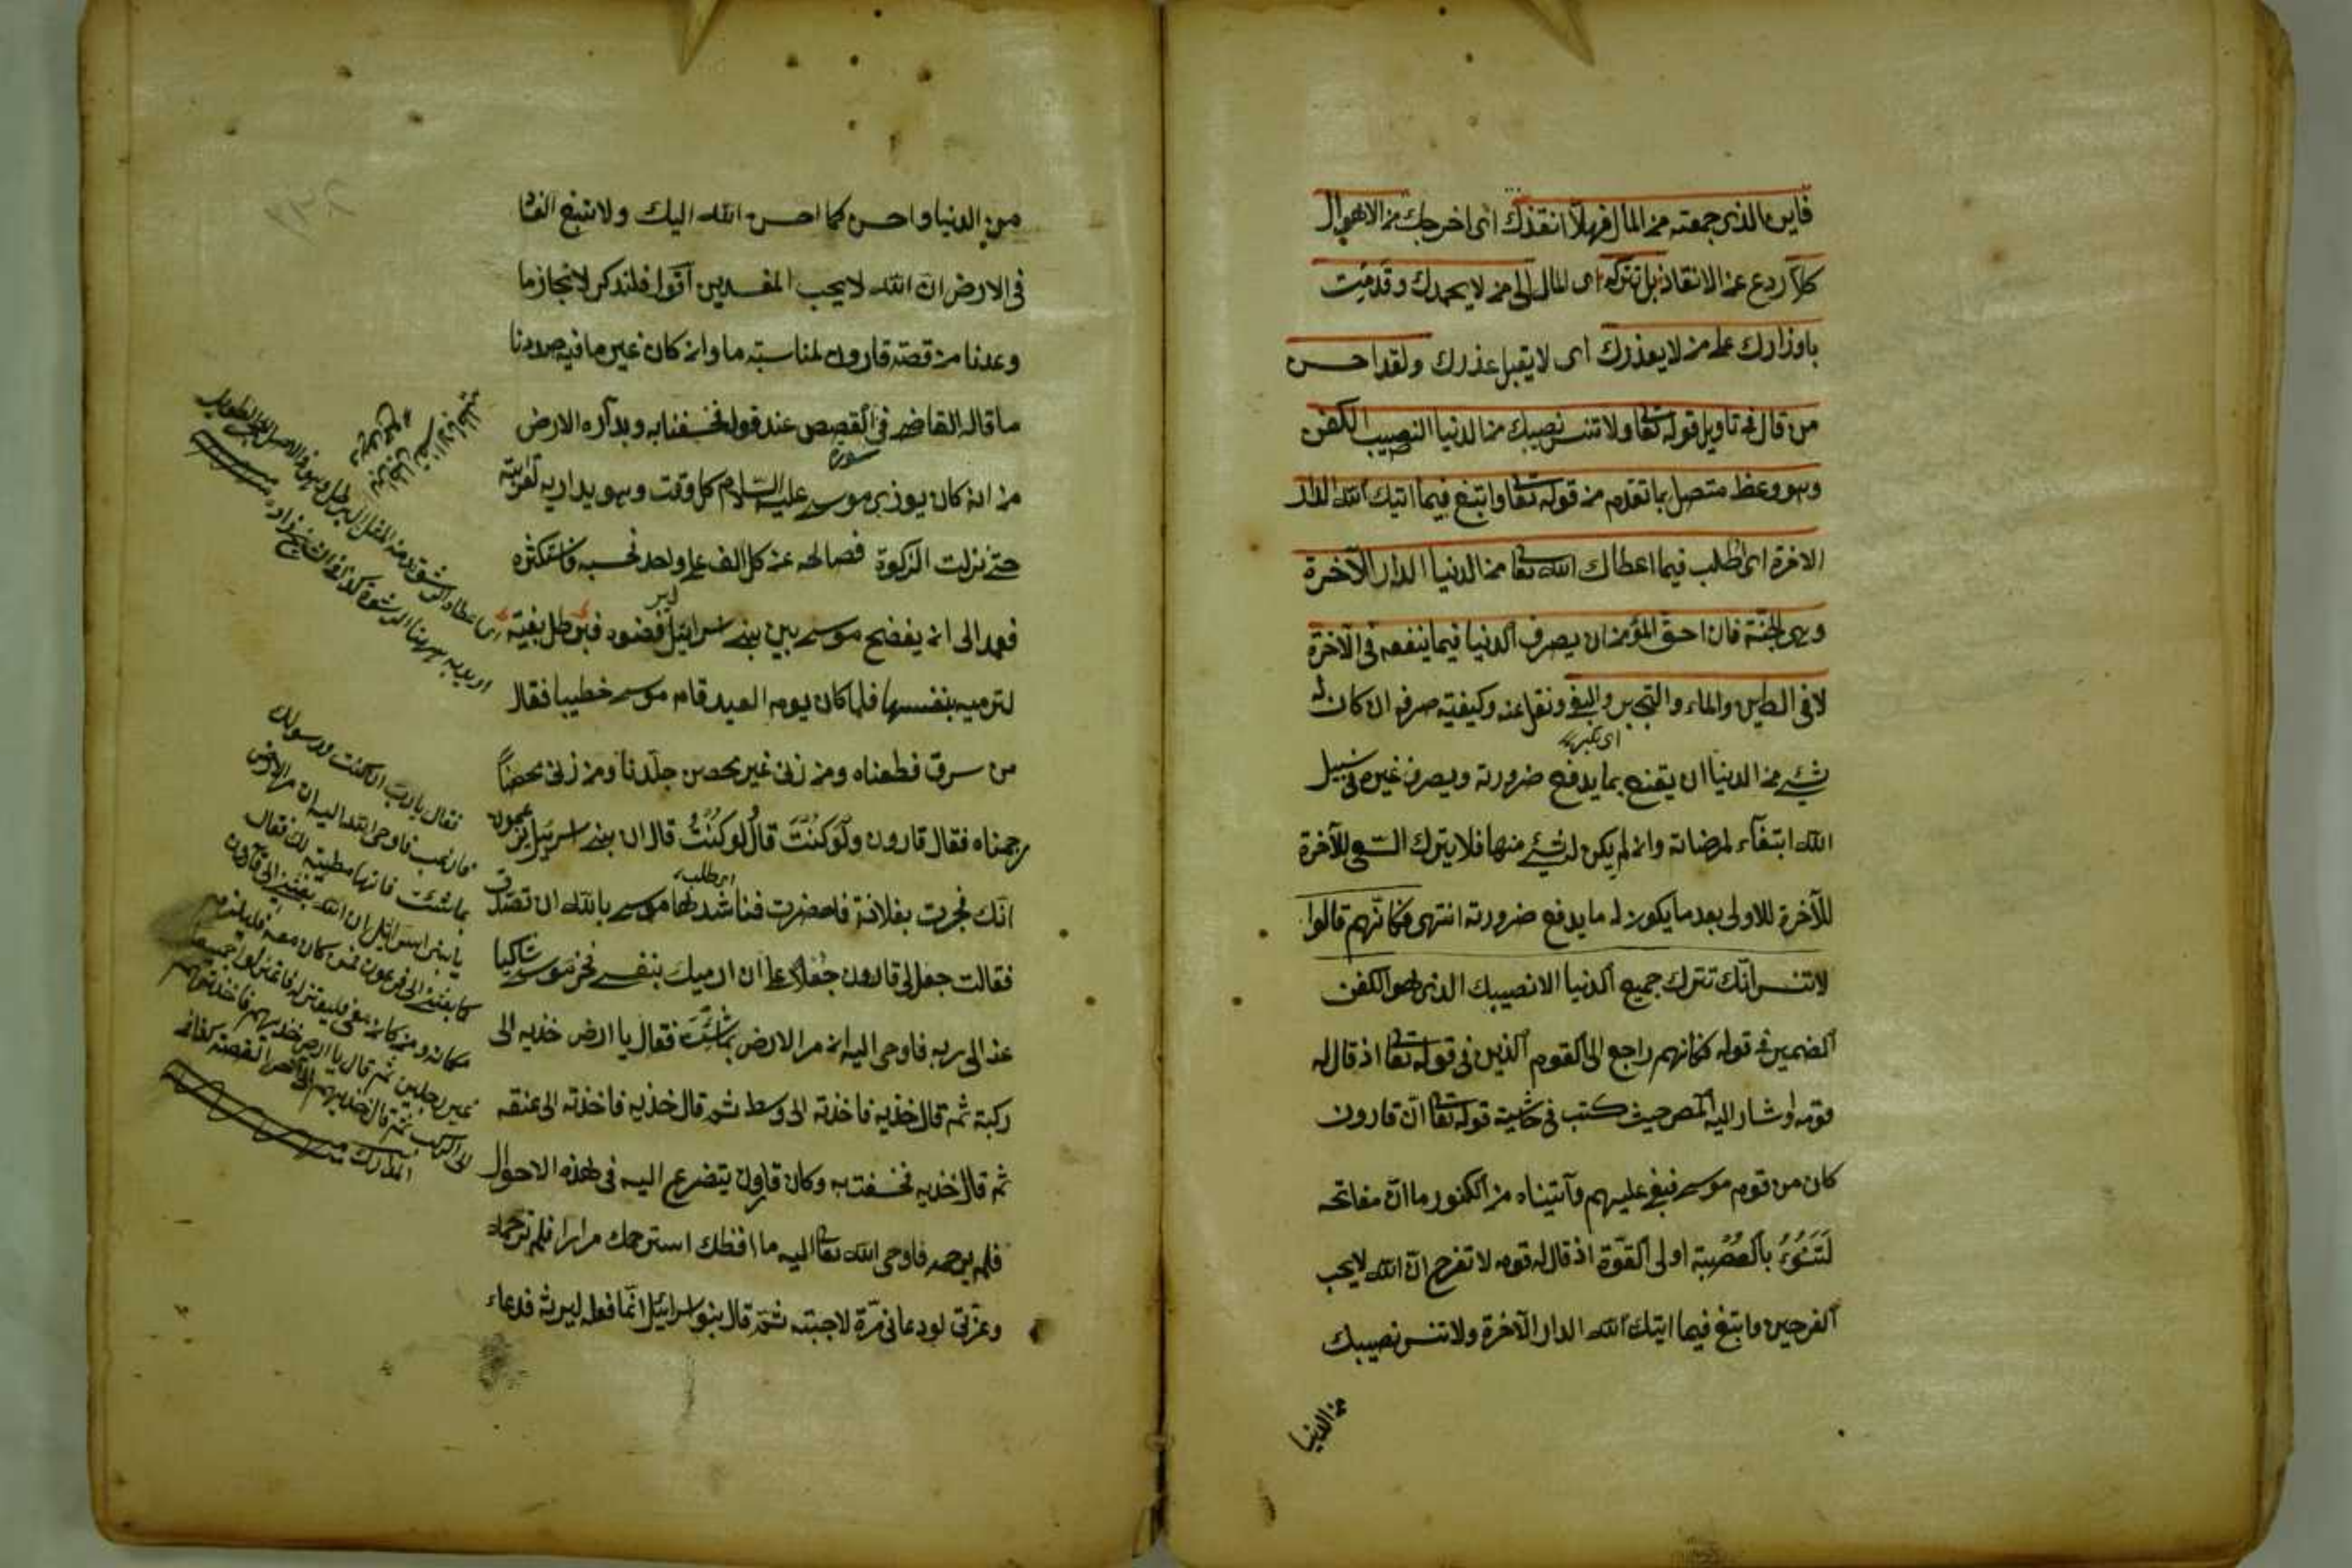 فاين الذى جمعته من المال فهلا انقذك اى اخرجك من الاهوال
كلا ردع عن الانقاذ بل تتركه اى المال الى من لا يحمدك وقدمت
باوزارك على من لا يعذرك اى لا يقبل عذرك ولقد احسن
من قال فى تاويل قوله تعا ولا تنس نصيبك من الدنيا النصيب الكفن
وهو وعظ متصل بما تقدم من قوله تعا وابتغ فيما اتيك الله الدار
الاخرة اى اطلب فيما اعطاك الله تعا من الدنيا الدار الآخرة
وهى الجنة فان احق المؤمن ان يصرف الدنيا فيما ينفعه فى الآخرة
لا فى الطين والماء والتجبر والبغى ونقل عنه وكيفية صرفه ان كان له
اى تكبر
شئ من الدنيا ان يقنع بما يدفع ضرورته ويصرف غيره فى سبيل
الله ابتغآء لمرضاته وان لم يكن له شئ منها فلا يترك السعى للآخرة
للآخرة للاولى بعد ما يكون له ما يدفع ضرورته انتهى فكانهم قالوا
لا تنس انك تترك جميع الدنيا الا نصيبك الذى هو الكفن
الضمير فى قوله فكانهم راجع الى القوم الذين فى قوله تعا اذ قال له
قومه واشار اليه المص حيث كتب فى حاشية قوله تعا ان قارون
كان من قوم موسى فبغى عليهم وآتيناه من الكنوز ما ان مفاتحه
لَتَنُوءُ بالعُصْبة اولى القوّة اذ قال له قومه لا تفرح ان الله لا يحب
الفرحين وابتغ فيما اتيك الله الدار الآخرة ولا تنس نصيبك
من الدنيا
من الدنيا واحسن كما احسن الله اليك ولا تبغ الفساد
فى الارض ان الله لا يحب المفسدين اقول فلنذكر لانجاز ما
وعدنا من قصة قارون لمناسبته ما وان كان غير ما فيه صددنا
ما قاله القاضى فى القصص عند قوله فخسفنا به وبداره الارض
سورة
من انه كان يوذى موسى عليه السلام كل وقت وهو يداريه لقرابته
حتى نزلت الزكوة فصالحه عن كل الف على واحد فحسبه فاستكثره
فعمد الى ان يفضح موسى بين بنى اسرائيل فبرطل بغية
لترميه بنفسها فلما كان يوم العيد قام موسى خطيبا فقال
من سرق قطعناه ومن زنى غير محصن جلّدنا ومن زنى محصناً
رجمناه فقال قارون ولو كنتَ قال ولو كنتُ قال ان بنى اسرئيل يزعمون
انّك فجرت بفلانة فاحضرت فناشدها موسى بالله ان تصدق
اى طلب
فقالت جعل لى قارون جُعلاً على ان ارميك بنفسى فخر موسى شاكيا
عنه الى ربه فاوحى اليه ان مر الارض بما شئت فقال يا ارض خذيه الى
ركبة ثم قال خذيه فاخذته الى وسط ثم قال خذيه فاخذته الى عنقه
ثم قال خذيه فخسفت به وكان قارون يتضرع اليه فى هذه الاحوال
فلم يرحمه فاوحى الله تعا اليه ما افظك استرحمك مرارا فلم ترحمه
وعزتى لو دعانى مرّة لاجبته ثم قال بنو اسرائيل انما فعله ليرثه فدعاء
فقال يا رب ان كنت رسولك
فاوحى الله اليه ان مر الارض
بما شئت فانها مطيعة لك فقال
يا بنى اسرائيل ان الله بعثنى الى قارون
كما بعثنى الى فرعون فمن كان معه فليلزم
مكانه ومن كان معى فليعتزل فاعتزلوا جميعا
غير رجلين ثم قال يا ارض خذيهم فاخذتهم
الى الركب ثم قال خذيهم الى آخر القصة كذا فى
المدارك